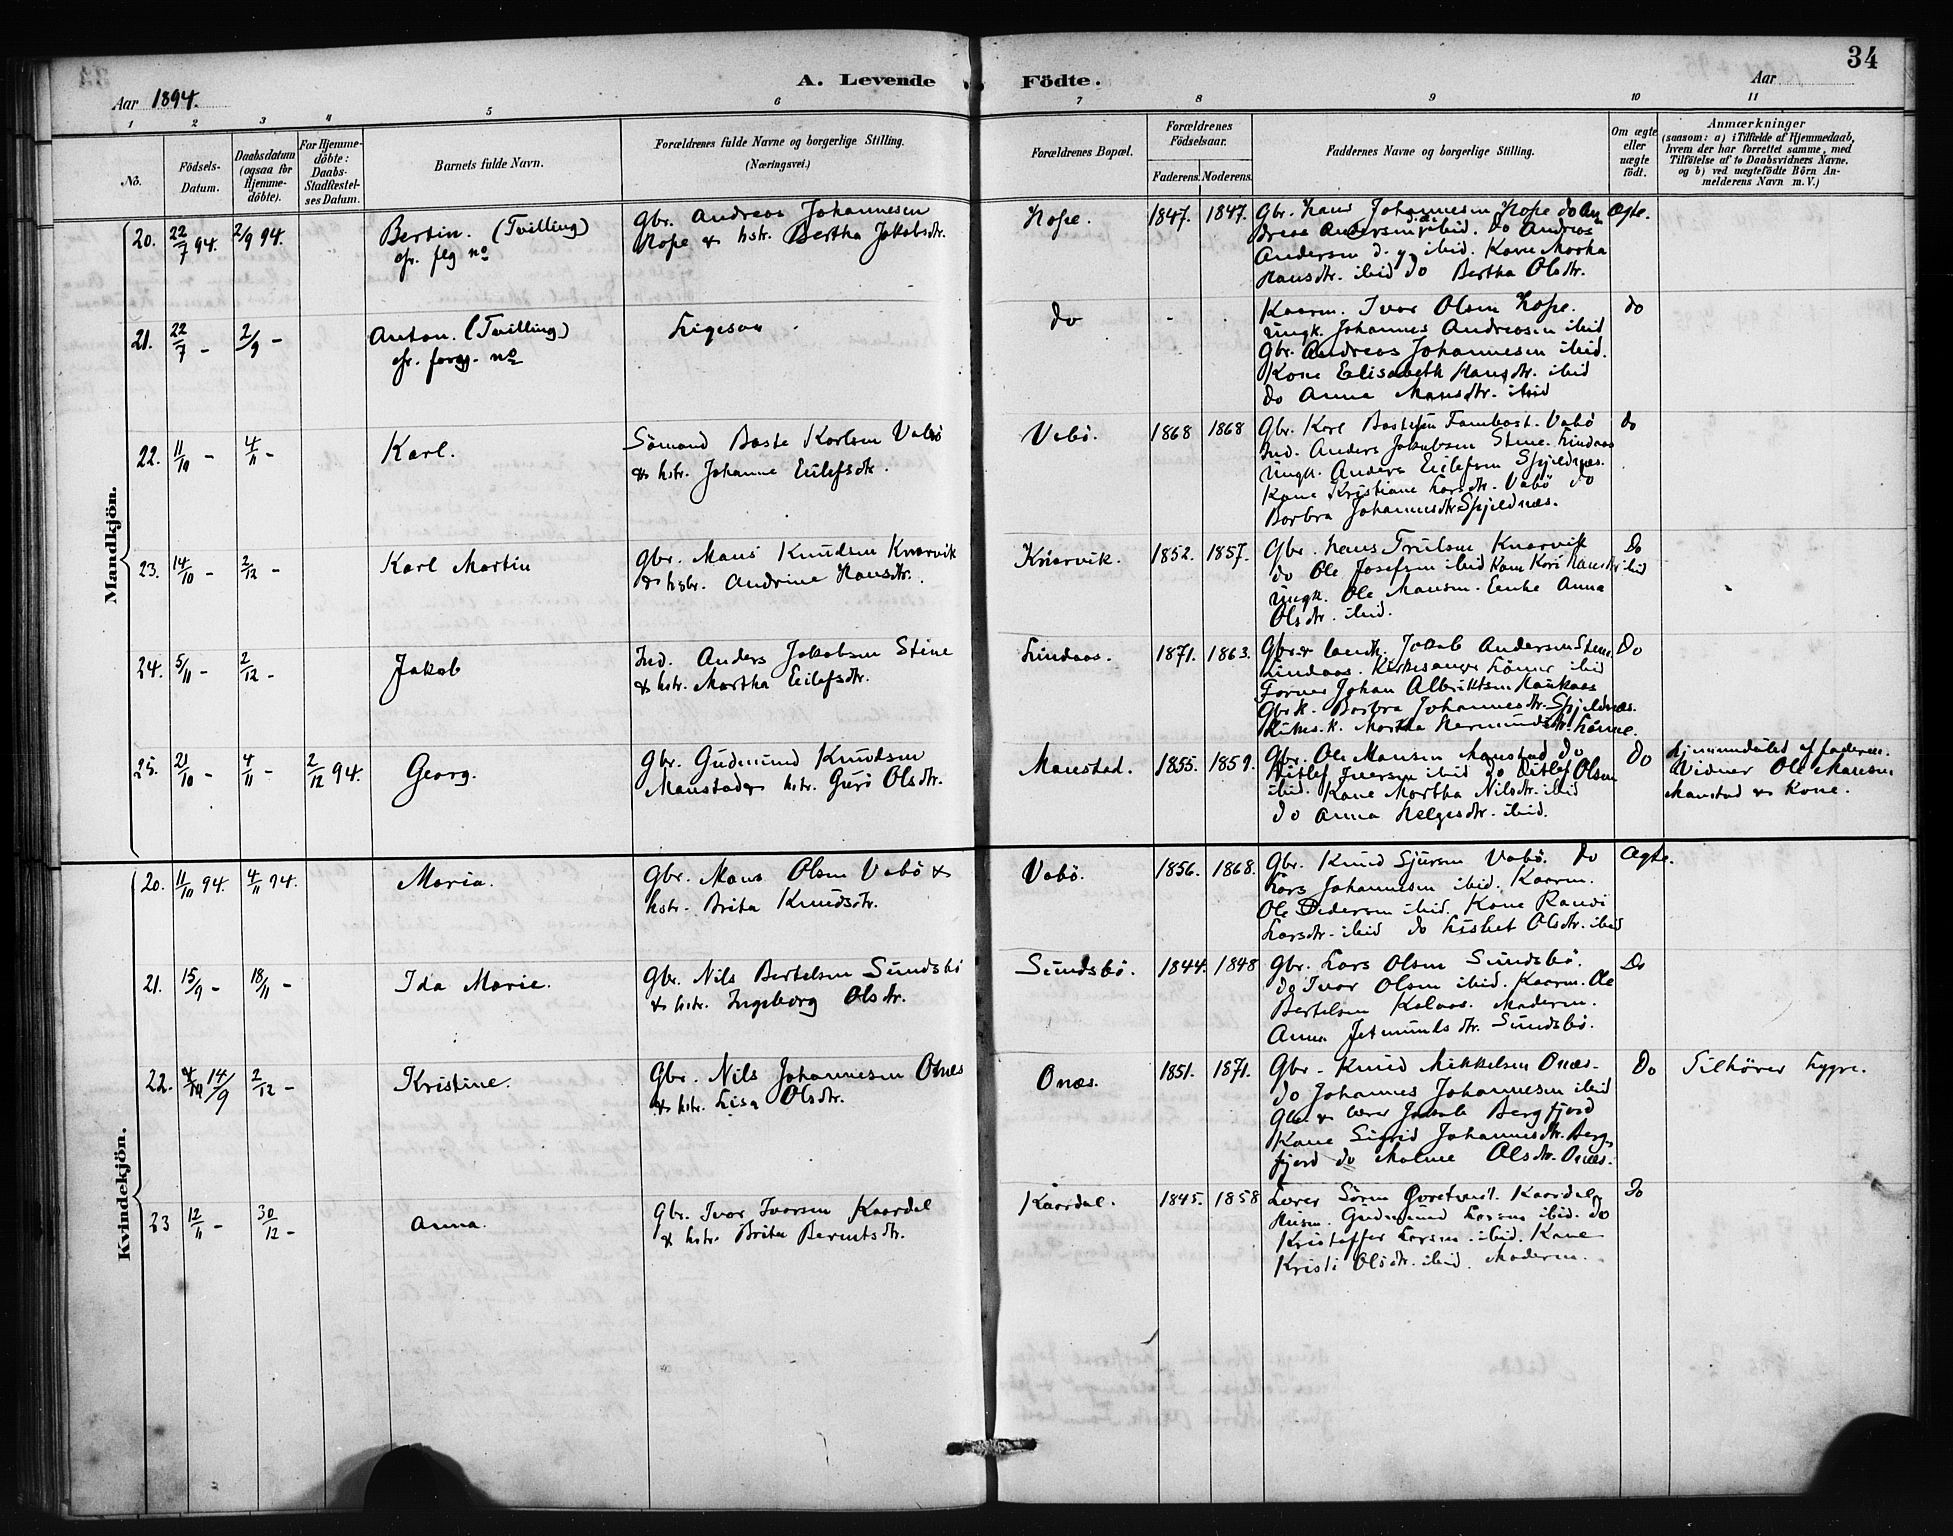 34
A. Levende Födte.
Aar 1894.
Aar
1 2 3 4 5 6 7 8 9 10 11
No.
Födsels-
Datum.
Daabsdatum
(ogsaa for
Hjemme-
döbte).
For Hjemme-
döbte:
Daabs-
Stadfæstel-
ses Datum.
Barnets fulde Navn.
Forældrenes fulde Navne og borgerlige Stilling.
(Næringsvei.)
Forældrenes Bopæl.
Forældrenes
Födselsaar.
Faderens. Moderens.
Faddernes Navne og borgerlige Stilling.
Om ægte
eller
uægte
födt.
Anmærkninger
(saasom: a) i Tilfælde af Hjemmedaab,
hvem der har forrettet samme, med
Tilföielse af to Daabsvidners Navne.
og b) ved uægtefödte Börn An-
melderens Navn m. V.)
Mandkjön.
20. 22/7 94. 2/9 94.
Bertin. (Tvilling)
cfr. flg no
Gbr. Andreas Johannesen
Hope & hstr. Bertha Jakobsdtr.
Hope. 1847. 1847.
Gbr. Hans Johannesen Hope do An
dreas Andersen ibid. do Andreas
Andersen d. y. ibid. Kone Marta
Hansdtr. ibid do Bertha Olsdtr.
Ægte.
21. 22/7 - 2/9 -
Anton. (Tvilling)
cfr. forrg. no
Ligesom
do - -
Kaarm. Ivar Olsen Hope.
Ungk. Johannes Andreasen ibid
Gbr. Andreas Johannesen ibid.
Kone Elisabeth Hansdtr. ibid
do Anna Mansdtr. ibid
do
22. 11/10 - 4/11 -
Karl.
Sömand Baste Karlsen Vabö
& hstr. Johanne Eilefsdtr.
Vabö. 1868 1868
Gbr. Karl Bastesen Vabö
Ind. Anders Jakobsen Stene Lindaas
Ungk. Anders Eilefsen Spjeldnæs.
Kone Kristiane Larsdtr. Vabö do
Barbra Johannesdtr Spjeldnæs.
do
23. 14/10 - 2/12 -
Karl Martin
Gbr. Mans Knudsen Knarvik
& hstr. Andrine Hansdtr.
Knarvik. 1852. 1857.
Gbr. Hans Trulsen Knarvik
do Ole Josefsen ibid Kone Kari Hansdtr ibid
Ungk. Ole Mansen. Enke Anna
Olsdtr. ibid.
Do
24. 5/11 - 2/12 -
Jakob
Ind. Anders Jakobsen Stene
& hstr. Martha Eilefsdtr.
Lindaas. 1871. 1863.
Gbr. & landh. Jakob Andersen Stene
Lindaas. Kirkesanger Lönne ibid
Johan Albriktsen Haukaas
Gbrk. Barbra Johannesdtr. Spjeldnæs.
Martha Hermundsdtr. Lönne.
Do
25. 21/10 - 4/11 - 2/12 94.
Georg.
Gbr. Gudmund Knudsen
Manstad & hstr. Guri Olsdtr.
Manstad. 1855. 1859.
Gbr. Ole Mansen Manstad do
Ditlef Iversen ibid do Ditlef Olsen
ibid. Kone Martha Nilsdtr. ibid
do Anna Helgesdtr. ibid.
Do
Hjemmedöbt af faderen.
Vidner Ole Mansen
Manstad & Kone.
Kvindekjön.
20. 11/10 94. 4/11 94.
Maria.
Gbr. Mons Olsen Vabö &
hstr. Brita Knudsdtr.
Vabö. 1856. 1868.
Gbr. Knud Sjursen Vabö. do
Lars Johannesen ibid. Kaarm.
Ole Pedersen ibid. Kone Randi
Larsdtr. ibid do Lisbet Olsdtr. ibid
Ægte.
21. 15/9 - 18/11 -
Ida Marie.
Gbr. Nils Bertelsen Sundsbö
& hstr. Ingeborg Olsdtr.
Sundsbö. 1844. 1848
Gbr. Lars Olsen Sundsbö.
do Ivar Olsen ibid. Kaarm. Ole
Bertelsen Kolaas. Moderen.
Anna Jetmundsdtr. Sundsbö.
Do
22. 14/9 2/12 -
Kristine.
Gbr. Nils Johannesen Onæs
& hstr. Lisa Olsdtr.
Onæs. 1851. 1871.
Gbr. Knud Mikkelsen Onæs.
do Johannes Johannesen ibid
Gbr. & lærer Jakob Bergfjord
Kone Sigrid Johannesdtr. Berg-
fjord do Malene Olsdtr. Onæs.
Do
Tilhörer Lygre.
23 12/11 - 30/12 -
Anna.
Gbr. Ivar Ivarsen Kaardal
& hstr. Brita Berntsdtr.
Kaardal. 1845. 1858
Lærer Sören Kaardal,
Husm. Gudmund Larsen ibid. do
Kristoffer Larsen ibid. Kone
Kristi Olsdtr. ibid. Moderen.
Do